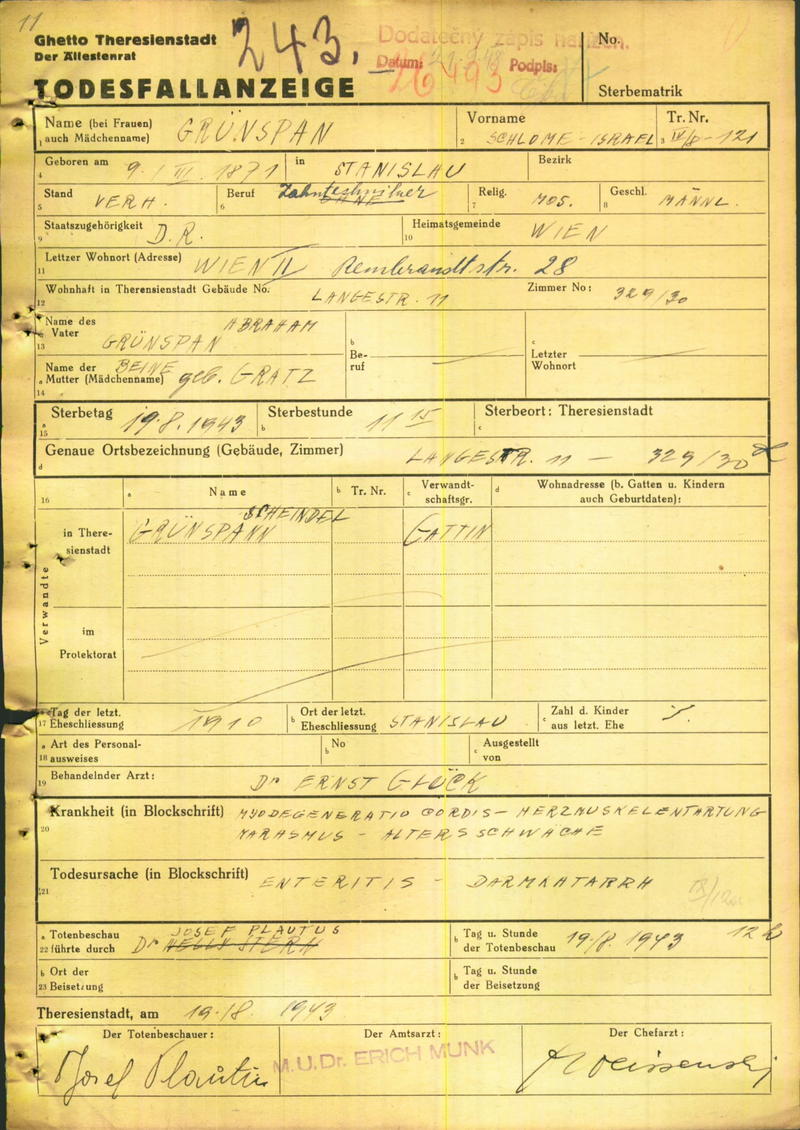 11
Ghetto Theresienstadt
Der Ältestenrat
243.
Dodatečný zápis nařízen.
Datum: Podpis:
26493
No.
TODESFALLANZEIGE
Sterbematrik
Name (bei Frauen) auch Mädchenname) GRÜNSPAN
1
Vorname
2 SCHLOME - ISRAEL
Tr. Nr.
3 IV/8 - 121
Geboren am 9. III. 1871 in STANISLAU Bezirk
4
Stand VERH. Beruf Zahntechniker OHNE Relig. MOS. Geschl. MÄNNL.
5 6 7 8
Staatszugehörigkeit D.R. Heimatsgemeinde WIEN
9 10
Lettzer Wohnort (Adresse) WIEN II Rembrandtstr. 28
11
Wohnhaft in Theresienstadt Gebäude No. LANGESTR. 11 Zimmer No: 329/30
12
Name des Vater GRÜNSPAN ABRAHAM
13
b Beruf
c Letzter Wohnort
Name der BEINE
a Mutter (Mädchenname) geb. GRATZ
14
Sterbetag 19.8.1943 Sterbestunde 11 15 Sterbeort: Theresienstadt
a 15 b c
Genaue Ortsbezeichnung (Gebäude, Zimmer) LANGESTR. 11 - 329/30
d
16 a Name b Tr. Nr. c Verwandtschaftsgr. d Wohnadresse (b. Gatten u. Kindern auch Geburtdaten):
Verwandte
in Theresienstadt
SCHEINDEL
GRÜNSPANN GATTIN
im Protektorat
a Tag der letzt. Eheschliessung 1910
17
b Ort der letzt. Eheschliessung STANISLAU
c Zahl d. Kinder aus letzt. Ehe
a Art des Personalausweises
18
b No
c Ausgestellt von
Behandelnder Arzt: Dr ERNST GLÜCK
19
Krankheit (in Blockschrift) MYODEGENERATIO CORDIS - HERZMUSKELENTARTUNG
20 MARASMUS - ALTERSSCHWÄCHE
Todesursache (in Blockschrift) ENTERITIS - DARMKATARRH
21
a Totenbeschau JOSEF PLAUTUS
22 führte durch Dr
b Tag u. Stunde der Totenbeschau 19/8. 1943 12 h
b Ort der
23 Beisetzung
b Tag u. Stunde der Beisetzung
Theresienstadt, am 19./8. 1943
Der Totenbeschauer: Der Amtsarzt: Der Chefarzt:
Josef Plautus
M.U.Dr. ERICH MUNK